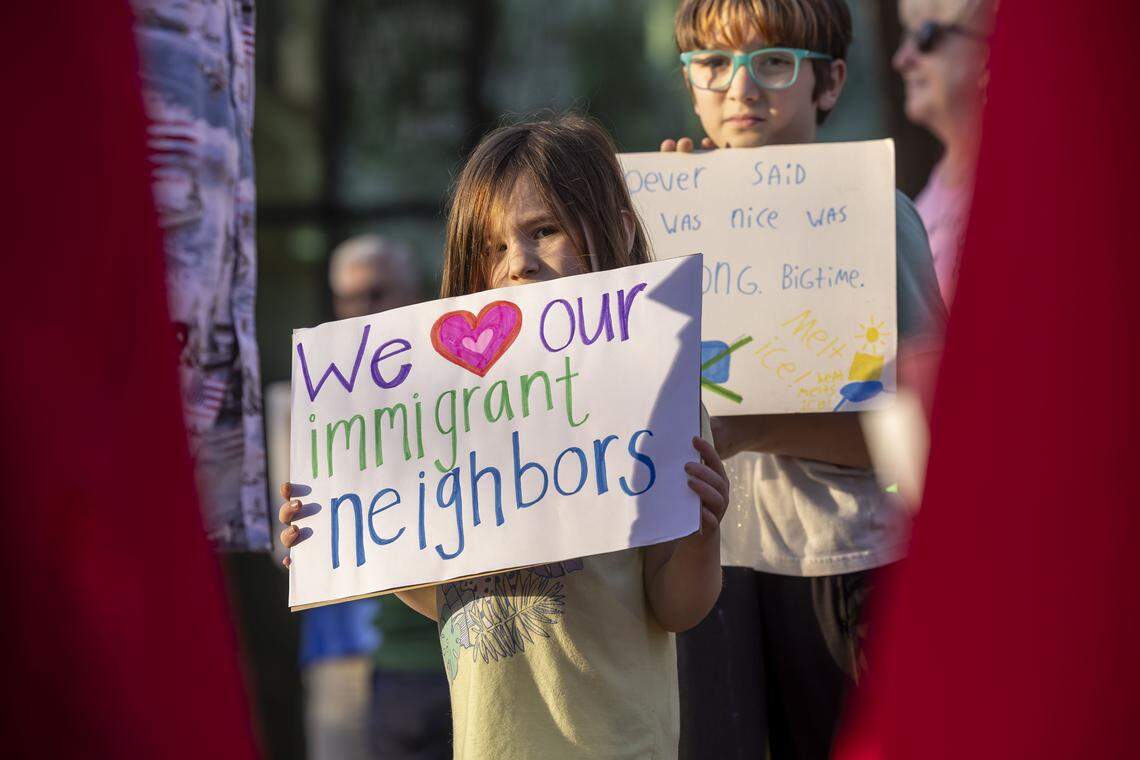 We our
immigrant
neighbors
oever SAiD
WAS nice WAS
ONG. BiGtime.
Melt
ice!
melts
ice!